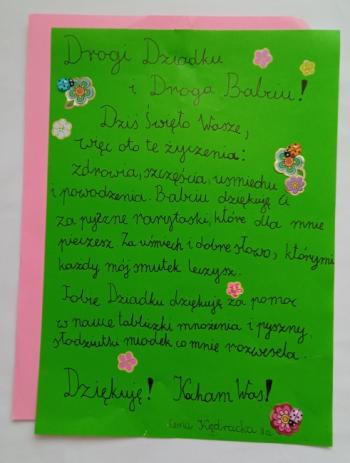 Drogi Dziadku
i Droga Babciu!
Dziś Święto Wasze,
więc oto te życzenia:
zdrowia, szczęścia, uśmiechu
i powodzenia. Babciu dziękuję Ci
za pyszne rarytaski, które dla mnie
pieczesz. Za uśmiech i dobre słowo, którymi
każdy mój smutek leczysz.
Tobie Dziadku dziękuję za pomoc
w nauce tabliczki mnożenia i pyszny,
słodziutki miodek co mnie rozwesela.
Dziękuję! Kocham Was!
Lena Kędracka 3a